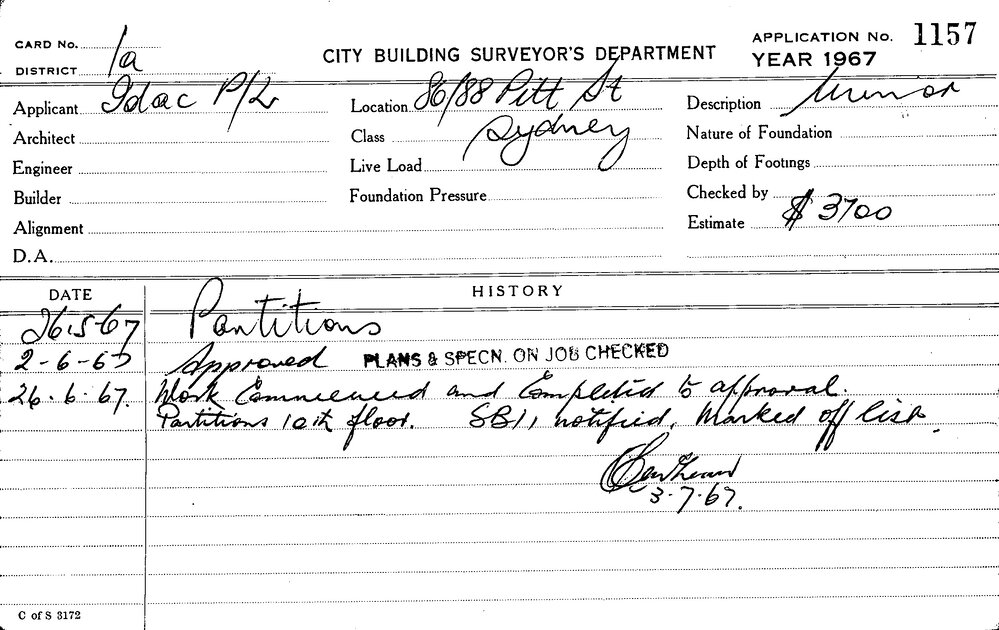 CARD No. 1a
DISTRICT
CITY BUILDING SURVEYOR'S DEPARTMENT
APPLICATION No. 1157
YEAR 1967
Applicant Idac P/L
Location 86/88 Pitt St
Description Minor
Architect
Class Sydney
Nature of Foundation
Engineer
Live Load
Depth of Footings
Builder
Foundation Pressure
Checked by
Alignment
Estimate $3700
D.A.
DATE HISTORY
26.5.67 Partitions
2-6-67 Approved PLANS & SPECN. ON JOB CHECKED
26.6.67. Work Commenced and Completed to approval.
Partitions 10th floor. SB1, notified, Marked off list.
3.7.67.
C of S 3172